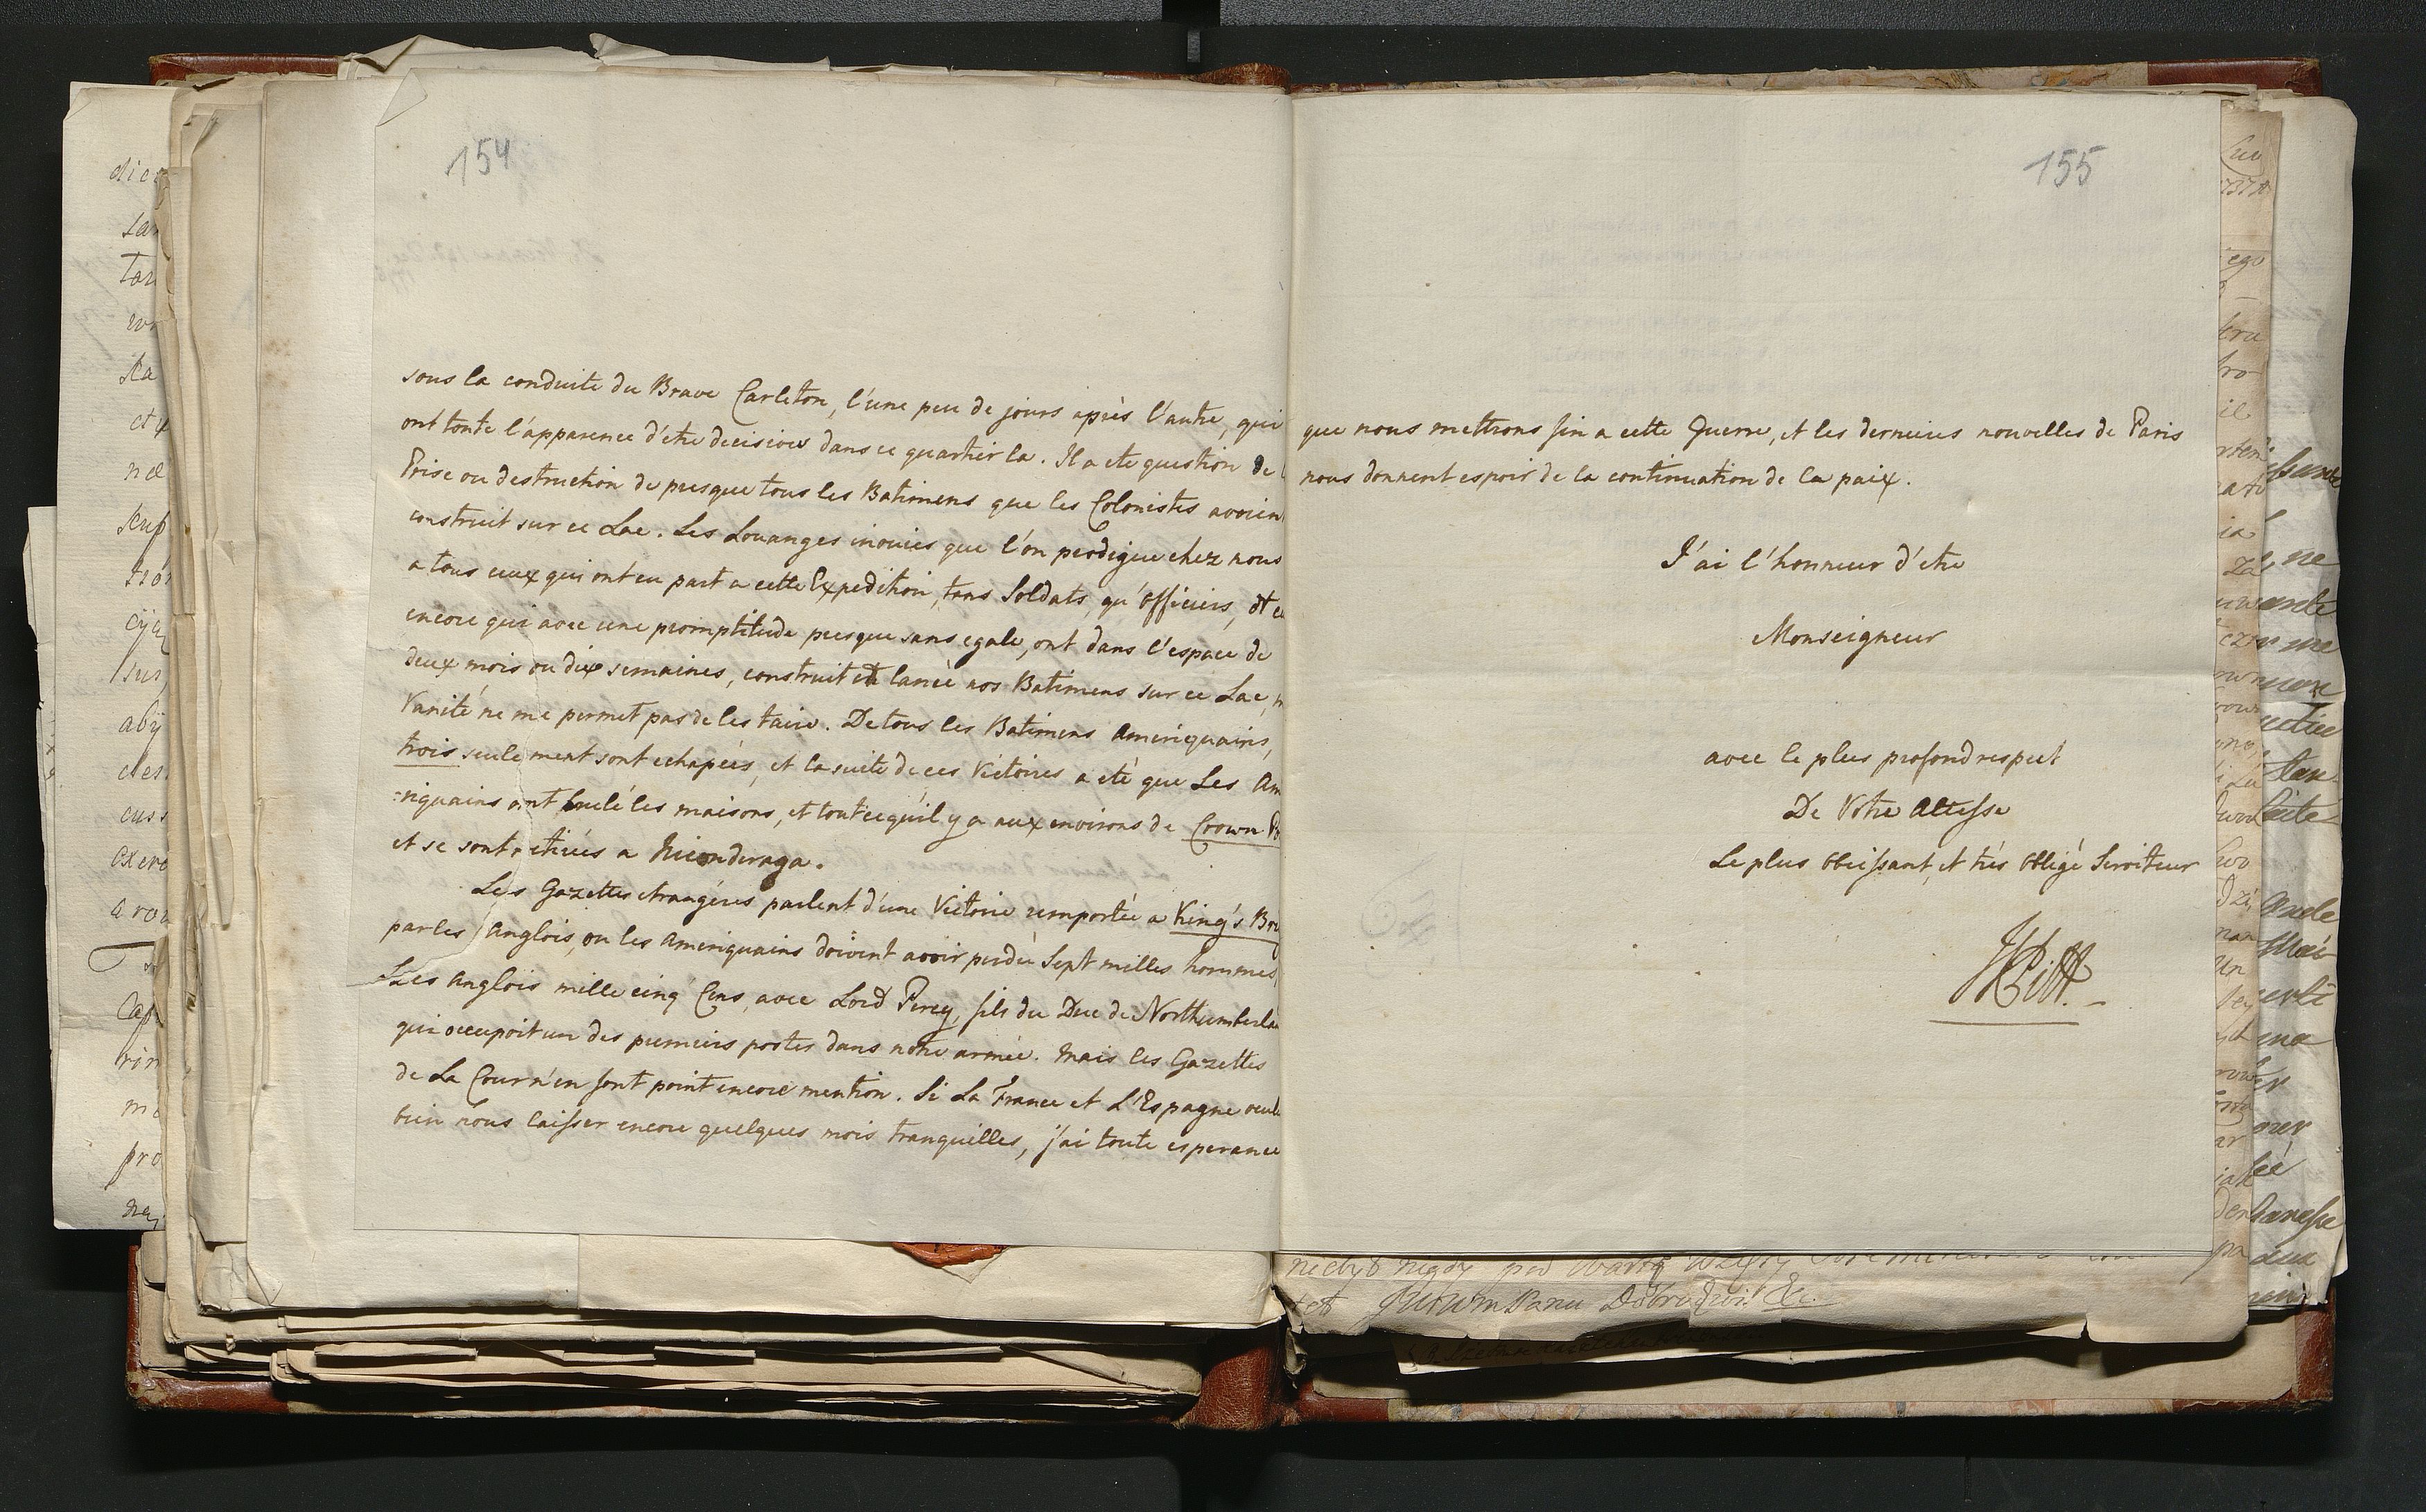 154
sous la conduite du Brave Carleton, l'une peu de jours après l'autre, qui
ont toute l'apparence d'etre decisives dans ce quartier la. Il a ete question de
Prise ou destruction de presque tous les Batimens que les Colonistes avoien
construit sur ce Lac. Les Louanges inouies que l'on prodigue chez nous
a tous ceux qui ont eu part a cette Expedition, tans Soldats, qu'officiers, et
encore qui avec une promptitude presque sans egale, ont dans l'espace de
deux mois ou dix semaines, construit et lancé nos Batimens sur ce Lac,
Vanité ne me permet pas de les taire. De tous les Batimens Ameriquains,
trois seulement sont echapeés, et la suite de ces Victoires a eté que Les Am
=riquains ont brulé les maisons, et tout ce qu'il y a aux environs de Crown Po
et se sont retirées a Ticonderaga.
Les Gazettes etrangéres parlent d'une Victoire remportée a King's Bri
par les Anglois, ou les Ameriquains doivent avoir perdu Sept milles hommes,
Les Anglois mille cinq Cens, avec Lord Percy, fils du Duc de Northumberla
qui occupoit un des premiers postes dans notre armée. Mais les Gazettes
de La Cour n'en font point encore mention. Si La France et L'Espagne veule
bien nous laisser encore quelques mois tranquilles, j'ai toute esperance
155
que nous mettrons fin a cette Guerre, et les dernieres nouvelles de Paris
nous donnent espoir de la continuation de la paix.
J'ai l'honneur d'etre
Monseigneur
avec le plus profond respect
De Votre Altesse
Le plus obeissant, et trés obligé Serviteur
Pitt.